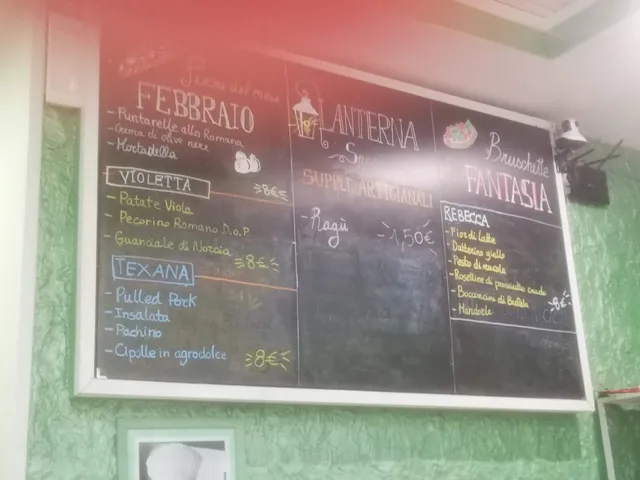 Pizza del mese
FEBBRAIO
- Puntarelle alla Romana
- Crema di olive nere
- Mortadella
8€
VIOLETTA
- Patate Viola
- Pecorino Romano D.O.P.
- Guanciale di Norcia
8€
TEXANA
- Pulled Pork
- Insalata
- Pachino
- Cipolle in agrodolce
8€
LANTERNA
SUPPLÌ ARTIGIANALI
- Ragù
1,50€
Bruschette
FANTASIA
REBECCA
- Fior di latte
- Datterino giallo
- Pesto di rucola
- Roselline di prosciutto crudo
- Bocconcini di Bufala
- Mandorle
8€